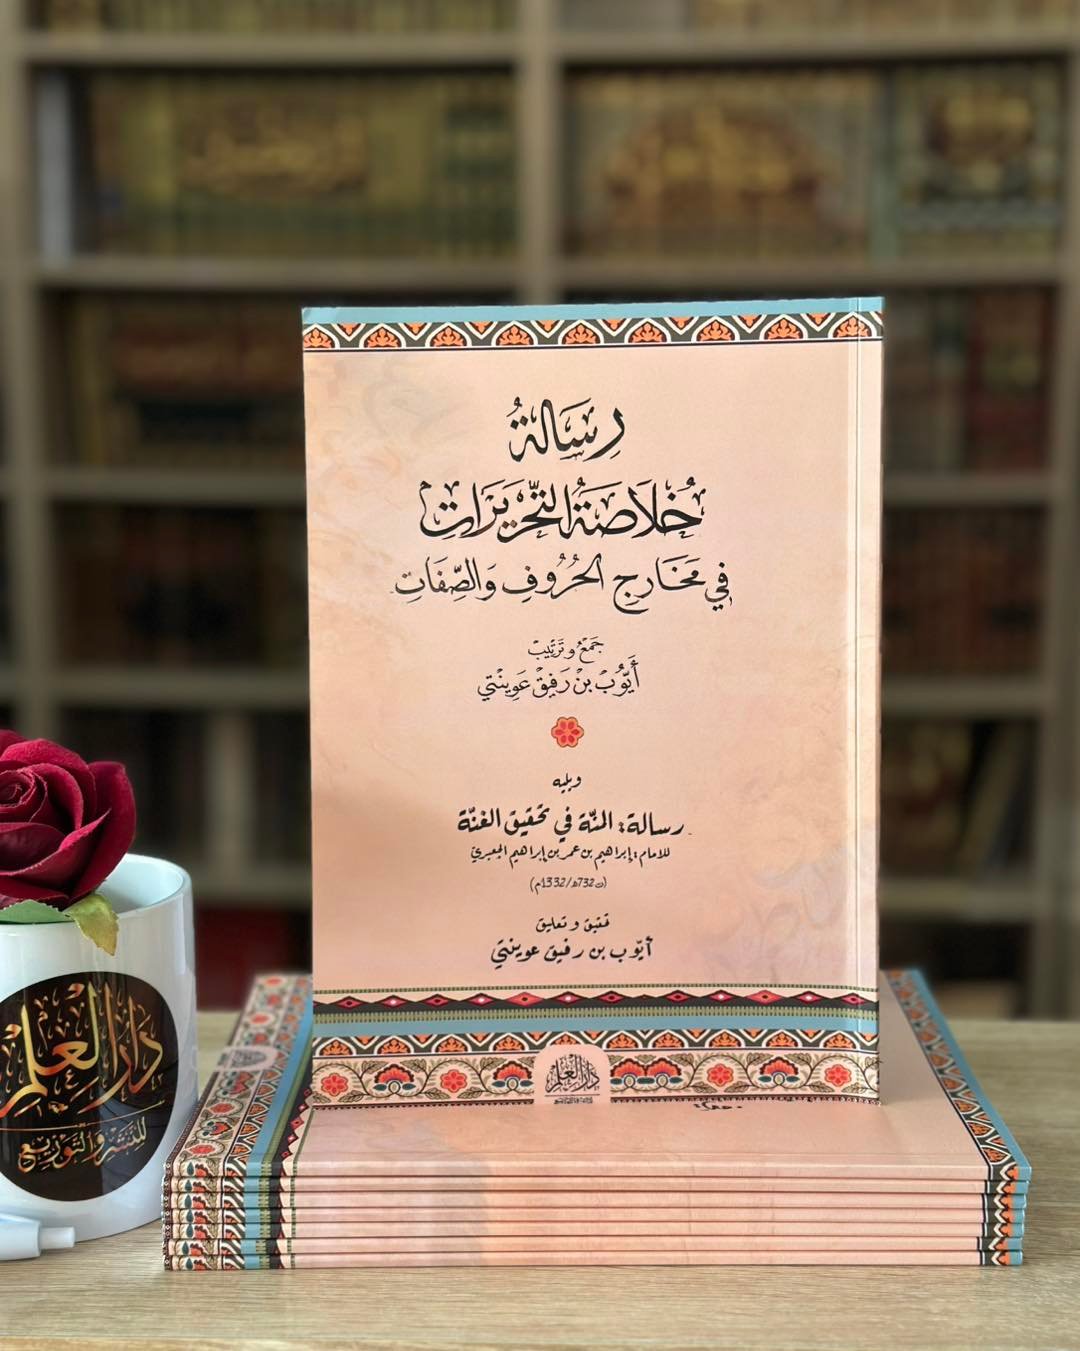 رِسَالَةُ
خُلَاصَةُ التَّحْرِيَرَاتِ
فِي مَخَارِجِ الحُرُوفِ وَالصِّفَاتِ
جَمْعُ وَتَرْتِيْبُ
أَيُّوبْ بنْ رَفِيقْ عَوِينْتِي
ويليه
رسالة: المنّة في تحقيق الغنّة
للامام: إبراهيم بن عمر بن إبراهيم الجعبري
(ت732ه/1332م)
تحقيق و تعليق
أيّوب بن رفيق عوينتي
دَارُ العِلْمِ
دَارُ العِلْمِ
للنَّشْرِ وَالتَّوْزِيعِ